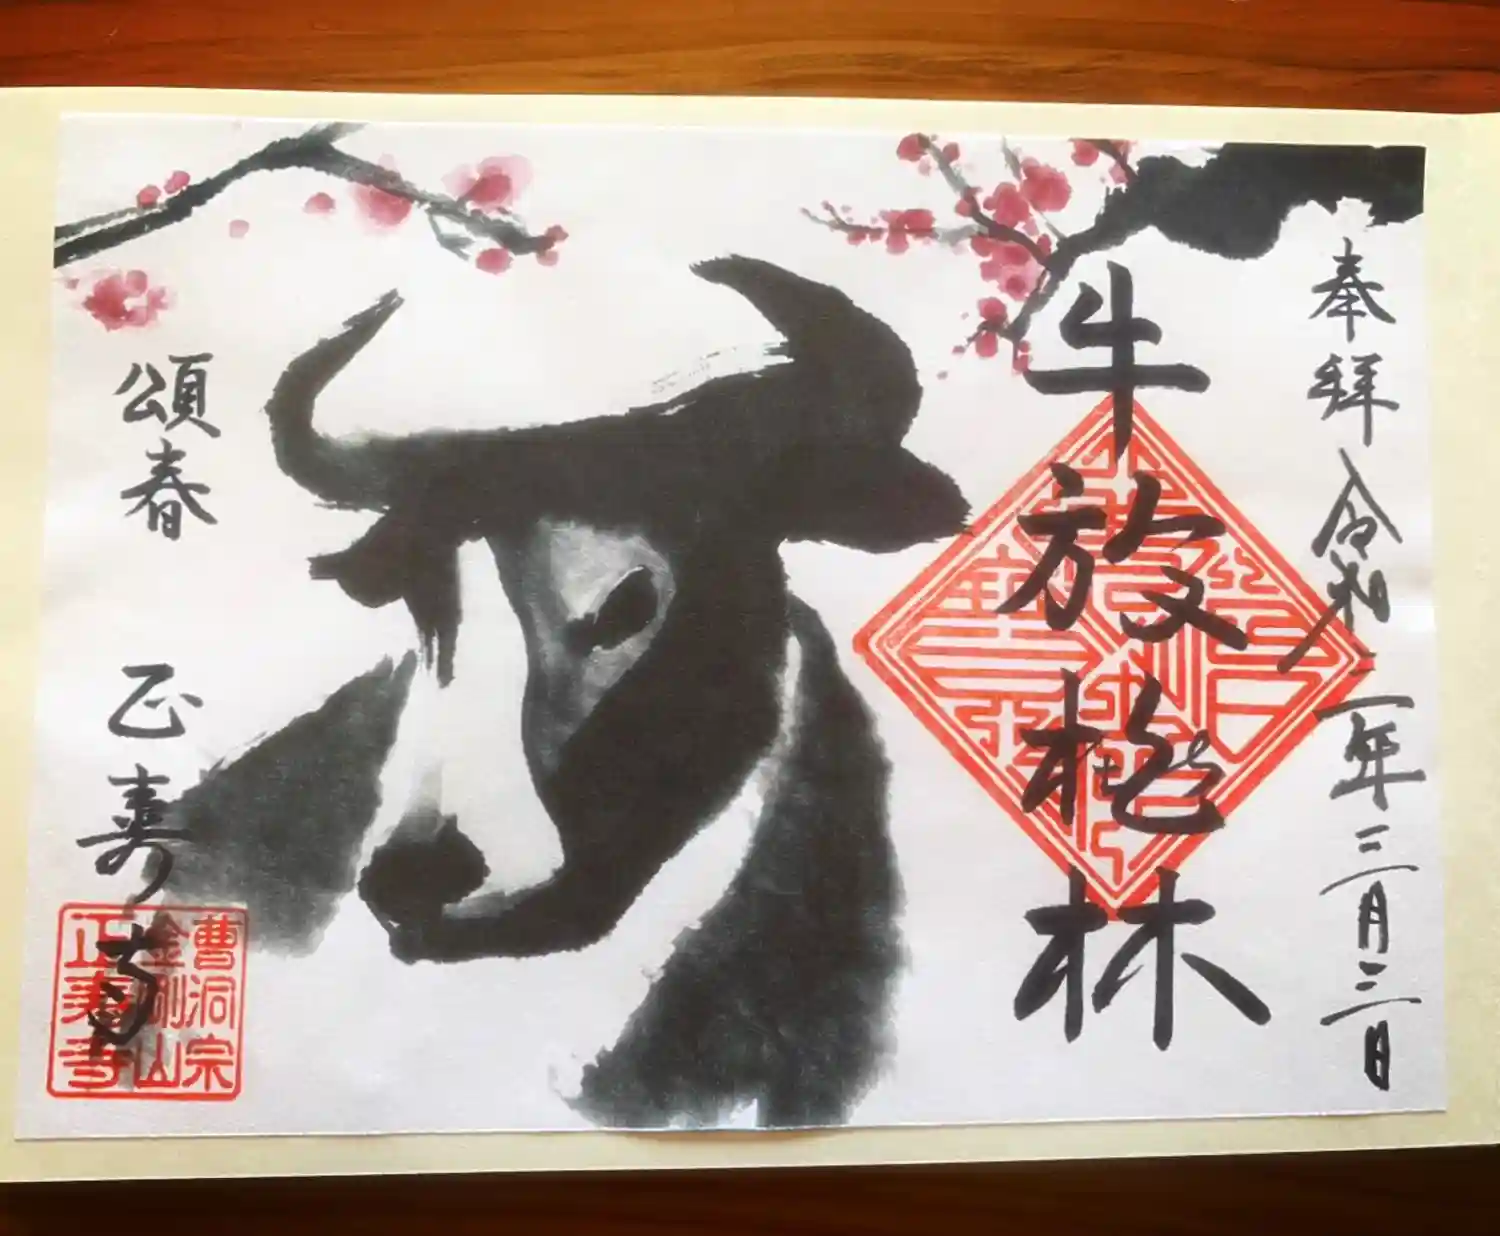 奉拝 令和三年三月三日
牛放桃林
頌春
正寿寺
曹洞宗
金剛山
正寿寺